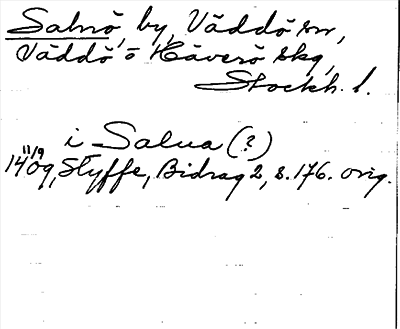 Salnö, by, Väddö sn,
Väddö o Häverö skg,
Stockh. l.
i Salua (?)
11/9
1409, Styffe, Bidrag 2, s. 176. orig.